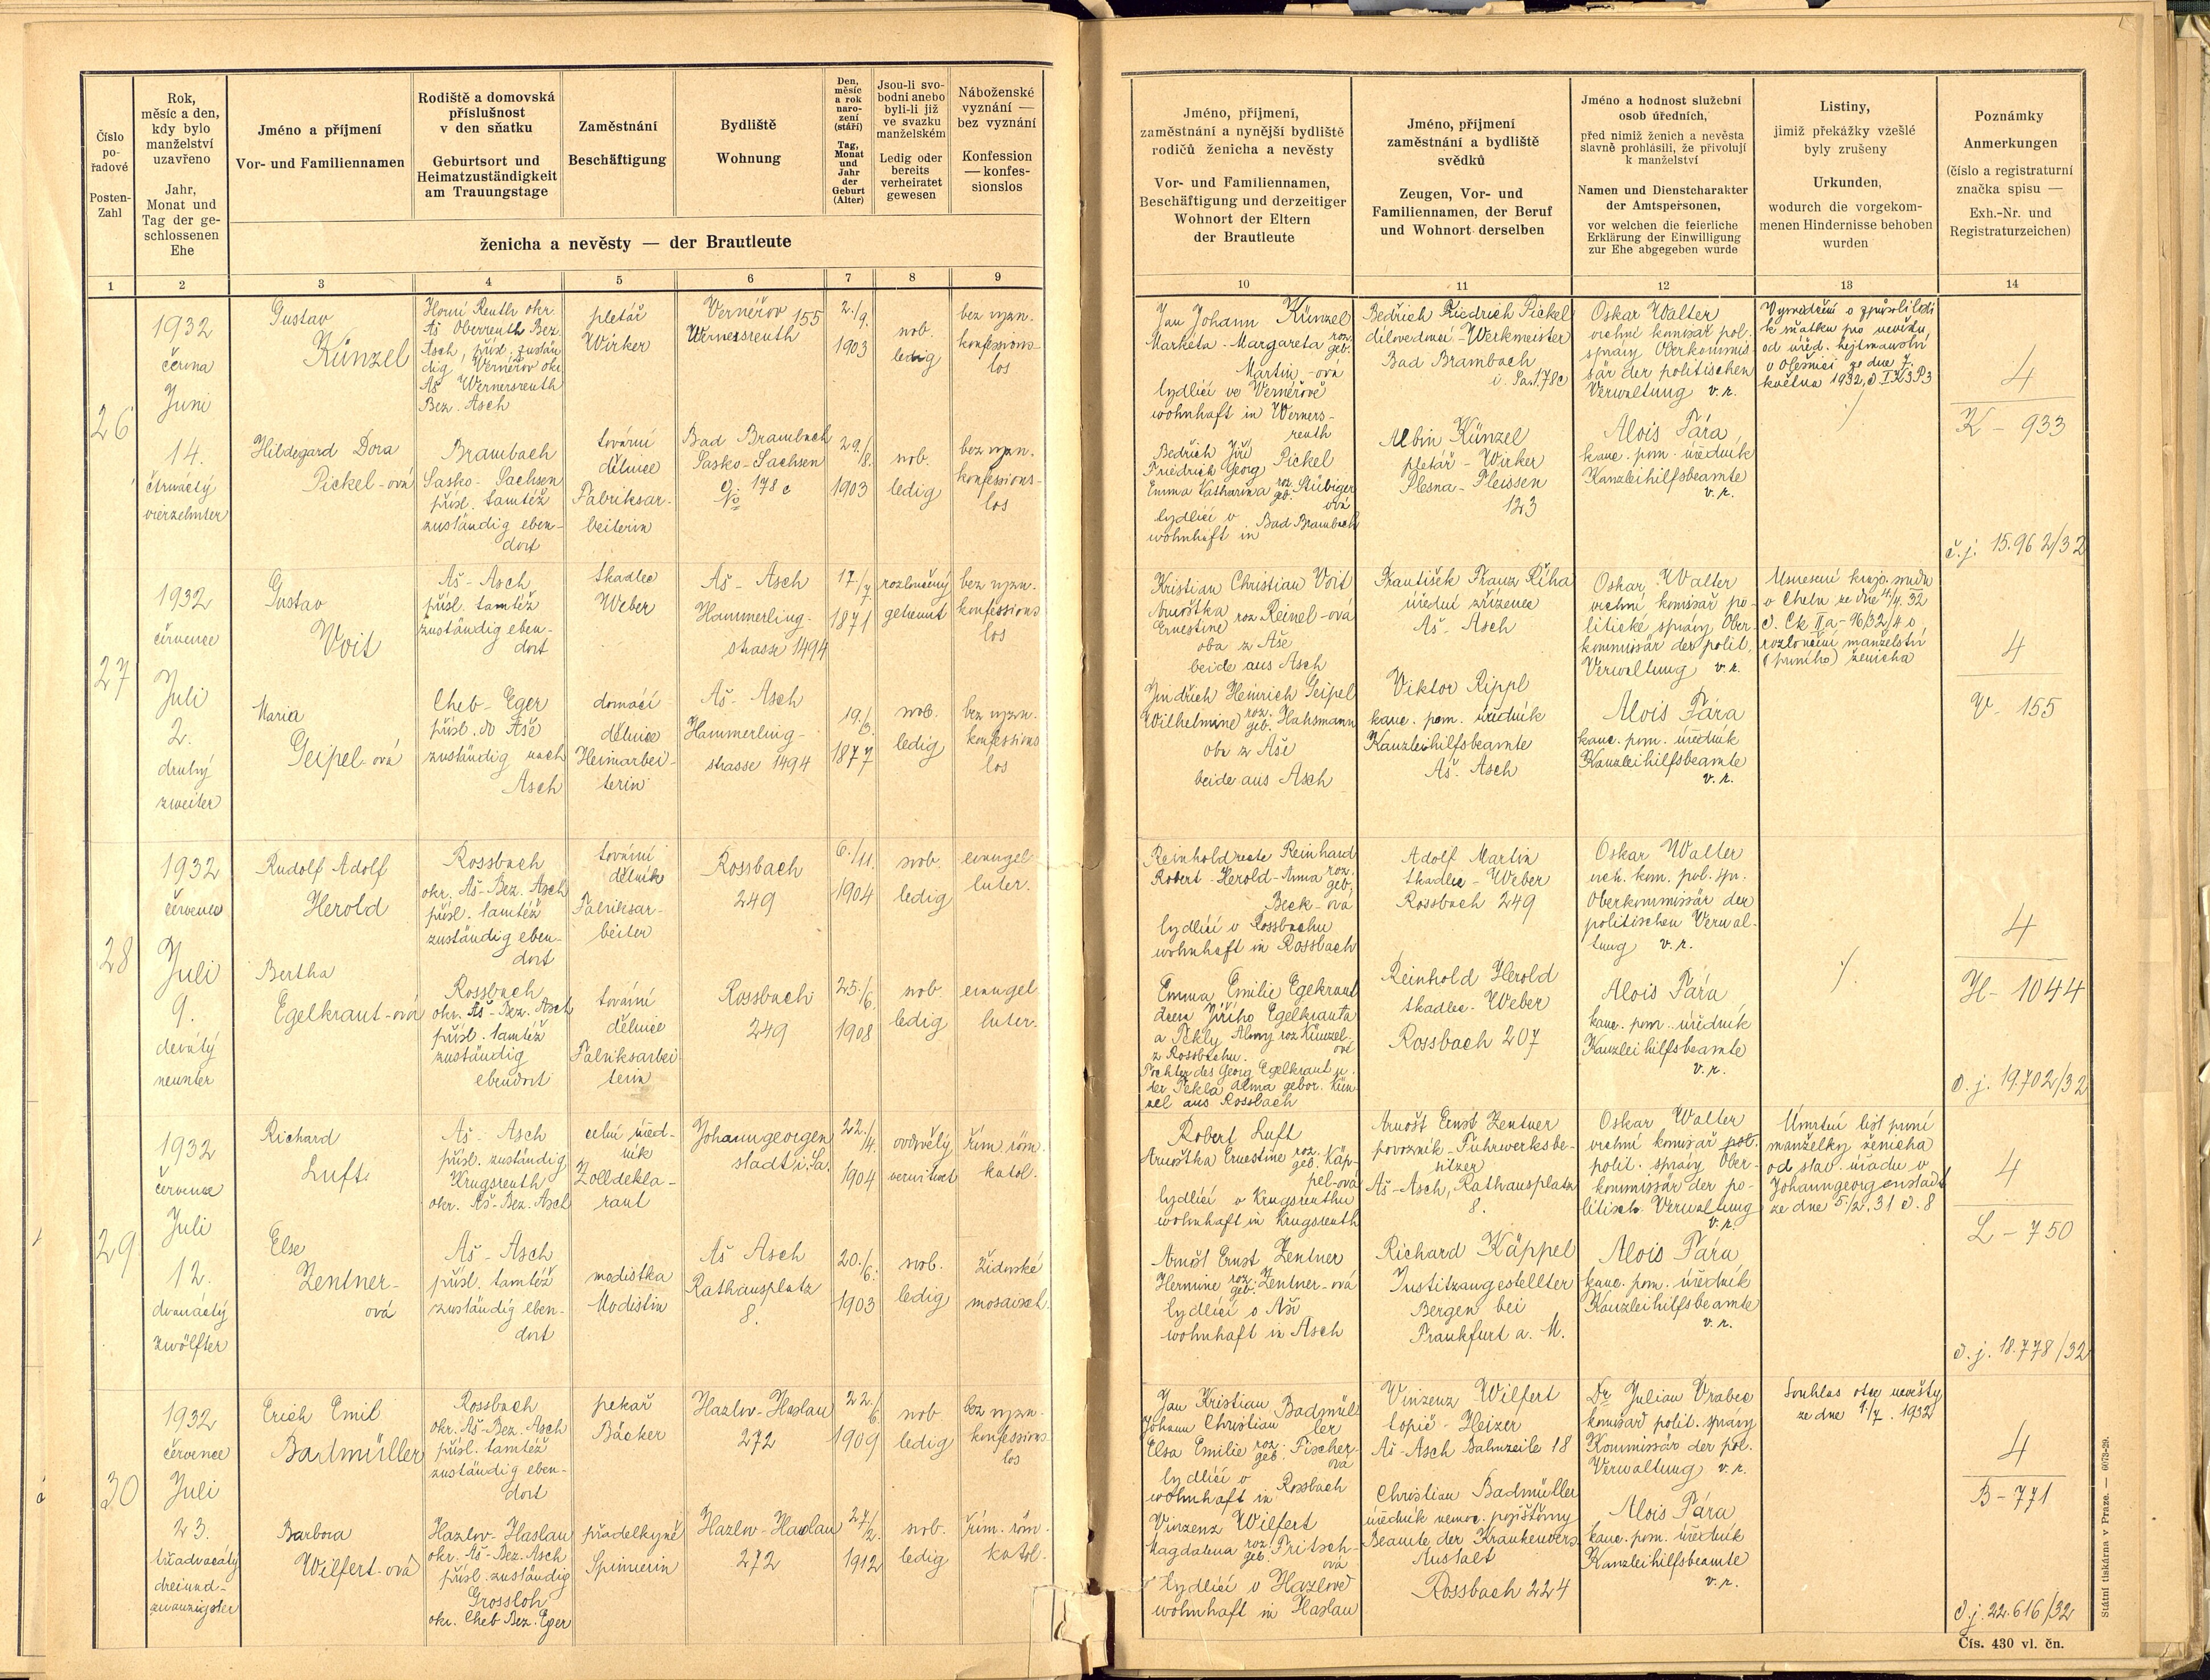 Číslo pořadové
Posten-Zahl
Rok, měsíc a den, kdy bylo manželství uzavřeno
Jahr, Monat und Tag der geschlossenen Ehe
Jméno a příjmení
Vor- und Familiennamen
Rodiště a domovská příslušnost v den sňatku
Geburtsort und Heimatzuständigkeit am Trauungstage
Zaměstnání
Beschäftigung
Bydliště
Wohnung
Den, měsíc a rok narození (stáří)
Tag, Monat und Jahr der Geburt (Alter)
Jsou-li svobodni anebo byli-li již ve svazku manželském
Ledig oder bereits verheiratet gewesen
Náboženské vyznání — bez vyznání
Konfession — konfessionslos
ženicha a nevěsty — der Brautleute
1 2 3 4 5 6 7 8 9
Jméno, příjmení, zaměstnání a nynější bydliště rodičů ženicha a nevěsty
Vor- und Familiennamen, Beschäftigung und derzeitiger Wohnort der Eltern der Brautleute
Jméno, příjmení zaměstnání a bydliště svědků
Zeugen, Vor- und Familiennamen, der Beruf und Wohnort derselben
Jméno a hodnost služební osob úředních,
před nimiž ženich a nevěsta slavně prohlásili, že přivolují k manželství
Namen und Dienstcharakter der Amtspersonen,
vor welchen die feierliche Erklärung der Einwilligung zur Ehe abgegeben wurde
Listiny,
jimiž překážky vzešlé byly zrušeny
Urkunden,
wodurch die vorgekommenen Hindernisse behoben wurden
Poznámky
Anmerkungen
(číslo a registraturní značka spisu —
Exh.-Nr. und Registraturzeichen)
10 11 12 13 14
26
1932
června
Juni
14.
čtrnáctý
vierzehnter
Gustav
Künzel
Horní Reuth okr.
Aš Oberreuth Bez.
Asch, přísl. zustän
dig Vernéřov okr.
Aš Wernersreuth
Bez. Asch
pletář
Wirker
Vernéřov 155
Wernersreuth
2./9.
1903
svob.
ledig
bez vyzn.
konfessions-
los
Hildegard Dora
Pickel-ová
Brambach
Sasko-Sachsen
přísl. tamtéž
zuständig eben-
dort
tovární
dělnice
Fabriksar-
beiterin
Bad Brambach
Sasko-Sachsen
178 c
29./8.
1903
svob.
ledig
bez vyzn.
konfessions-
los
Jan Johann Künzel
Marketa-Margareta roz. geb.
Martin-ová
bydlící ve Vernéřově
wohnhaft in Werners-
reuth
Bedřich Jiří
Friedrich Georg Pickel
Emma Katharina roz. geb. Stübiger
ová
bydlící v
wohnhaft in Bad Brambach
Bedřich Friedrich Pickel
dílovedoucí-Werkmeister
Bad Brambach
i. Sa. 178c
Albin Künzel
pletář-Wirker
Plesna-Fleissen
123
Oskar Walter
vrchní komisař pol.
správy Oberkommis-
sär der politischen
Verwaltung v.r.
Alois Fára
kanc. pom. úředník
Kanzleihilfsbeamte
v.r.
Vysvědčení o způsobilosti
k sňatku pro nevěstu,
od úřed. hejtmanství
v Olešnici ze dne 7.
května 1932, č. I K3P3
./.
4
K - 933
č.j. 15.962/32
27
1932
července
Juli
2.
druhý
zweiter
Gustav
Voit
Aš-Asch
přísl. tamtéž
zuständig eben-
dort
tkadlec
Weber
Aš-Asch
Hammerling-
strasse 1494
17./7
1871
rozloučený
getrennt
bez vyzn.
konfessions
los
Maria
Geipel-ová
Cheb-Eger
přísl. do Aše
zuständig nach
Asch
domácí
dělnice
Heimarbei-
terin
Aš-Asch
Hammerling-
strasse 1494
19./3.
1877
svob.
ledig
bez vyzn.
konfessions
los
Kristian Christian Voit
Arnoštka
Ernestine roz. Reinel-ová
oba z Aše
beide aus Asch
Jindřich Heinrich Geipel
Wilhelmine roz. geb. Hahsmann
oba z Aše
beide aus Asch
František Franz Říha
úřední zřízenec
Aš-Asch
Viktor Rippl
kanc. pom. úředník
Kanzleihilfsbeamte
Aš-Asch
Oskar Walter
vrchní komisař po-
litické správy Ober-
kommissär der polit.
Verwaltung v.r.
Alois Fára
kanc. pom. úředník
Kanzleihilfsbeamte
v.r.
Usnesení krajs. soudu
v Chebu ze dne 4/4. 32
č. Ck IIa-96/32/4 o
rozloučení manželství
(prvního) ženicha
4
V - 155
28
1932
července
Juli
9.
devátý
neunter
Rudolf Adolf
Herold
Rossbach
okr. Aš-Bez. Asch
přísl. tamtéž
zuständig eben-
dort
tovární
dělník
Fabriksar-
beiter
Rossbach
249
6./11.
1904
svob.
ledig
evangel.
luter.
Bertha
Egelkraut-ová
Rossbach
okr. Aš-Bez. Asch
přísl. tamtéž
zuständig
ebendort
tovární
dělnice
Fabriksarbei-
terin
Rossbach
249
25./6.
1908
svob.
ledig
evangel.
luter.
Reinhold recte Reinhard
Robert Herold-Anna roz. geb.
Beck-ová
bydlící v Rossbachu
wohnhaft in Rossbach
Emma Emilie Egekraut
dcera Jiřího Egelkrauta
a Tekly Almy roz Künzel-
ové
z Rossbachu.
Tochter des Georg Egelkraut u.
der Tekla Alma gebor. Kün-
zel aus Rossbach
Adolf Martin
tkadlec-Weber
Rossbach 249
Reinhold Herold
tkadlec-Weber
Rossbach 207
Oskar Walter
vrch. kom. pol. spr.
Oberkommissär der
politischen Verwal-
tung v.r.
Alois Fára
kanc. pom. úředník
Kanzleihilfsbeamte
v.r.
./.
4
H - 1044
č.j. 19.702/32
29
1932
července
Juli
12.
dvanáctý
zwölfter
Richard
Luft
Aš-Asch
přísl. zuständig
Krugsreuth
okr. Aš-Bez. Asch
celní úřed-
ník
Zolldekla-
rant
Johanngeorgen
stadt i. Sa.
22./4.
1904
ovdovělý
verwitwet
řím. röm.
katol.
Else
Zentner-
ová
Aš-Asch
přísl. tamtéž
zuständig eben-
dort
modistka
Modistin
Aš Asch
Rathausplatz
8.
20./6.
1903
svob.
ledig
židovské
mosaisch.
Robert Luft
Arnoštka Ernestine roz. geb. Käp-
pel-ová
bydlící v Krugsreuthu
wohnhaft in Krugsreuth
Arnošt Ernst Zentner
Hermine roz. geb. Zentner-ová
bydlící v Aši
wohnhaft in Asch
Arnošt Ernst Zentner
povozník-Fuhrwerksbe-
sitzer
Aš-Asch, Rathausplatz
8.
Richard Käppel
Justitzangestellter
Bergen bei
Frankfurt a. M.
Oskar Walter
vrchní komisař pol.
polit. správy Ober-
kommissär der po-
litisch. Verwaltung
v.r.
Alois Fára
kanc. pom. úředník
Kanzleihilfsbeamte
v.r.
Úmrtní list první
manželky ženicha
od stav. úřadu v
Johanngeorgenstadt
ze dne 5/2. 31 č. 8
4
L - 750
č.j. 18.778/32
30
1932
července
Juli
23.
třiadvacátý
dreiund-
zwanzigster
Erich Emil
Badmüller
Rossbach
okr. Aš-Bez. Asch
přísl. tamtéž
zuständig eben-
dort
pekař
Bäcker
Hazlov-Haslau
272
22./6.
1909
svob.
ledig
bez vyzn.
konfessions-
los
Barbora
Wilfert-ová
Hazlov-Haslau
okr. Aš-Bez. Asch
přísl. zuständig
Grossloh
okr. Cheb Bez. Eger
přadelkyně
Spinnerin
Hazlov-Haslau
272
27./2.
1912
svob.
ledig
řím. röm.
katol.
Jan Kristian
Johann Christian Badmül-
ler
Elsa Emilie roz. geb. Fischer-
ová
bydlící v
wohnhaft in Rossbach
Vinzenz Wilfert
Magdalena roz. geb. Fritsch-
ová
bydlící v Hazlově
wohnhaft in Haslau
Vinzenz Wilfert
topič-Heizer
Aš-Asch Bahnzeile 18
Christian Badmüller
úředník nemoc. pojišťovny
Beamte der Krankenvers.
Anstalt
Rossbach 224
Dr Julian Vrabec
komisař polit. správy
Kommissär der pol.
Verwaltung v.r.
Alois Fára
kanc. pom. úředník
Kanzleihilfsbeamte
v.r.
Souhlas otce nevěsty
ze dne 9./7. 1932
4
B - 771
č.j. 22.616/32
Čís. 430 vl. čn.
Státní tiskárna v Praze. — 6073-29.